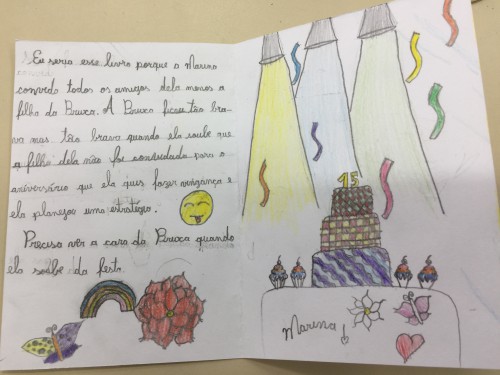 Eu seria esse livro porque a Marina
convido todos os amigos dela menos a
filha da Bruxa. A Bruxa ficou tão bra-
va mas tão brava quando ela soube que
a filha dela não foi convidada para o
aniversário que ela quis fazer vingança e
ela planejou uma estratégia.
Precisa ver a cara da Bruxa quando
ela soube da festa.
15
Marina